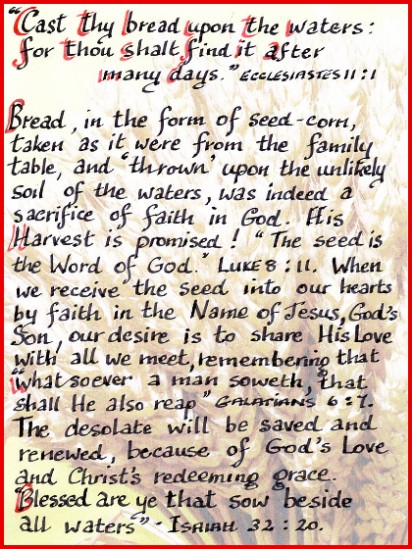 "Cast thy bread upon the waters:
for thou shalt find it after
many days." ECCLESIASTES 11:1
Bread, in the form of seed-corn,
taken as it were from the family
table, and 'thrown' upon the unlikely
soil of the waters, was indeed a
sacrifice of faith in God. His
Harvest is promised! "The seed is
the Word of God." LUKE 8:11. When
we receive the seed into our hearts
by faith in the Name of Jesus, God's
Son, our desire is to share His Love
with all we meet, remembering that
"whatsoever a man soweth, that
shall He also reap" GALATIANS 6:7.
The desolate will be saved and
renewed, because of God's Love
and Christ's redeeming grace.
Blessed are ye that sow beside
all waters" - ISAIAH 32:20.